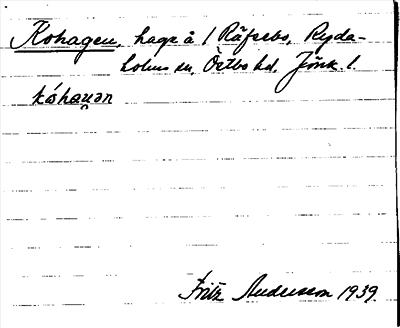 Kohagen, hage å 1 Räfsebo, Ryda-
holms sn, Östbo hd, Jönk. l.
kóhaɡən
Fritz Andersson 1939.